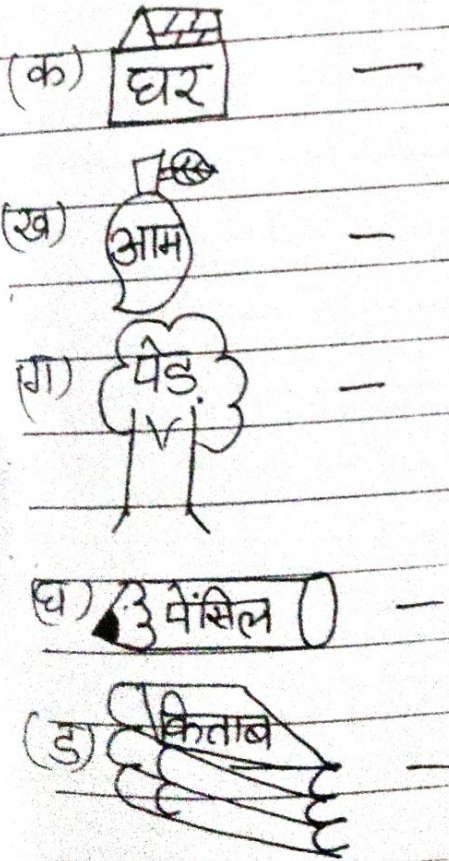 (क) घर —
(ख) आम —
(ग) पेड़ —
(घ) पेंसिल —
(ङ) किताब —